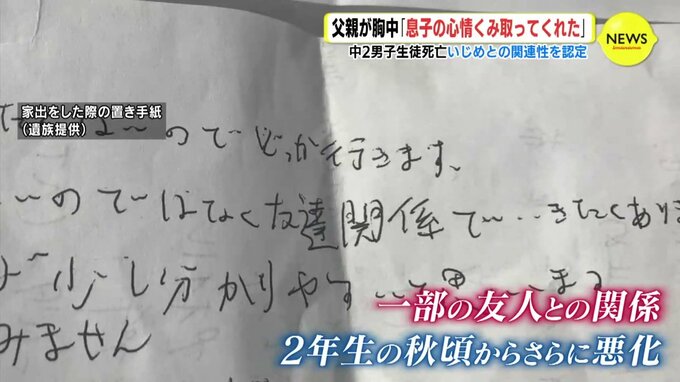 父親が胸中「息子の心情くみ取ってくれた」
中2男子生徒死亡いじめとの関連性を認定
NEWS
家出をした際の置き手紙
(遺族提供)
のでどっか行きます。
のではなく友達関係で‥きたくあり
少し分かりやす
ます
みません
一部の友人との関係
2年生の秋頃からさらに悪化